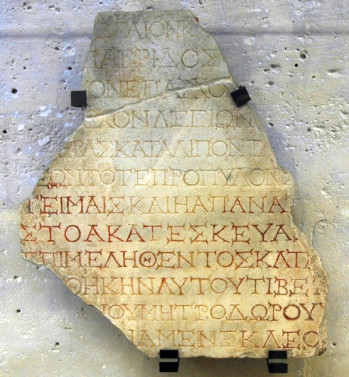 ΕΛΙΟΝ
ΑΤΡΙΔΟΣ
ΟΝΕΠΑΣΚΟ
ΕΟΝΔΕΠΩΝ
ΡΑΣΚΑΤΑΛΙΠΟΝΤΑ
ΕΟΝΤΟΤΕΠΡΟΠΥΛΟΝ
ΤΕΙΜΑΙΣΚΑΙΗΑΠΑΝΑ
ΣΤΟΑΚΑΤΕΣΚΕΥΑΣ
ΕΠΙΜΕΛΗΘΕΝΤΟΣΚΑΤ
ΘΗΚΗΝΑΥΤΟΥΤΙΒΕΡ
ΟΥΜΗΤΡΟΔΩΡΟΥ
ΑΜΕΝΕΚΛΕΟ